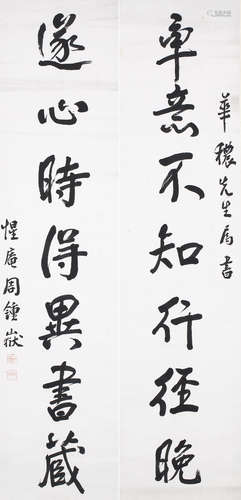 華穠先生属書
率意不知行徑晚
遂心時得異書藏
惺庵周鍾嶽